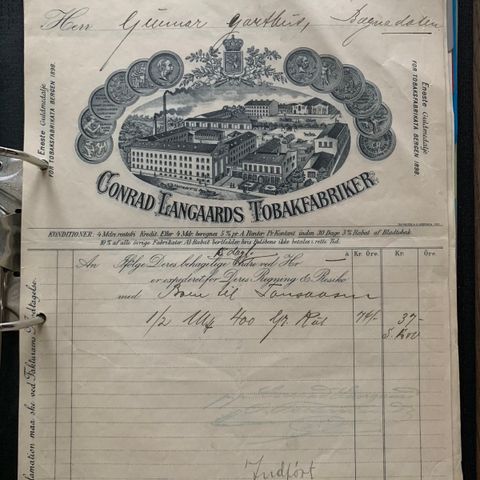 Herr Gunnar Garthus, Bagnedalen
Eneste Guldmedalje
FOR TOBAKSFABRIKATA BERGEN 1898.
Eneste Guldmedalje
FOR TOBAKSFABRIKATA BERGEN 1898.
CONRAD LANGAARDS TOBAKFABRIKER
KONDITIONER: 4 Mdrs rentefri Kredit. Efter 4 Mdr. beregnes 5% pr. A. Renter. Pr. Kontant inden 30 Dage 3% Rabat af Bladtobak
10% af alle övrige Fabrikater. Al Rabat bortfalder hvis Beløbene ikke betales i rette Tid.
Kr. Öre. Kr. Öre.
An Ifølge Deres behagelige Ordre ved Hr.
er expederet for Deres Regning & Risiko
med til
1/2 400 Gr. 74/- 37-
Indført
lamation maa ske ved Fakturams Modtagelse.